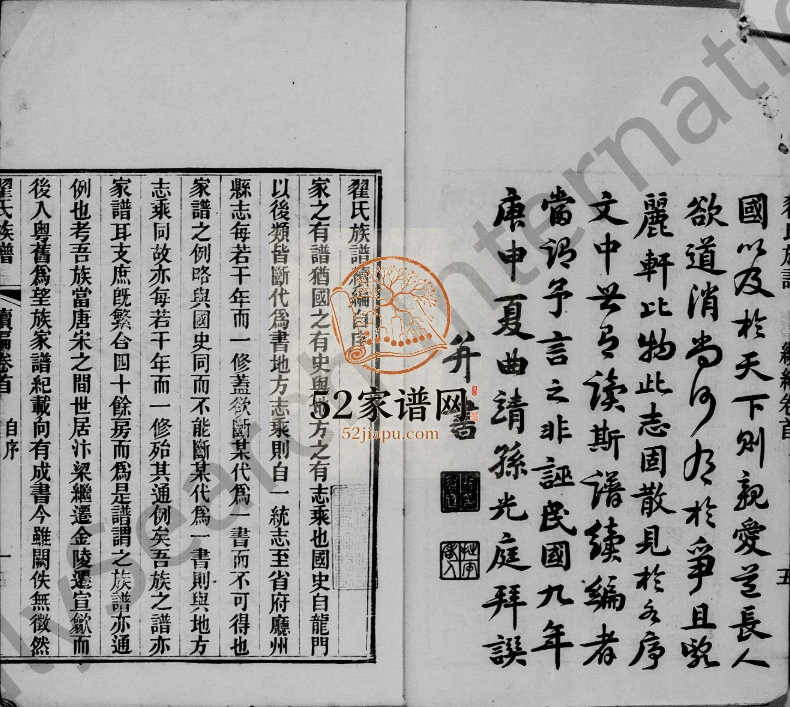 國以及於天下則親愛道長人
欲道消尚何有於爭且覽
麗軒比物此志固散見於各序
文中其有讀斯譜續編者
當謂予言之非誣民國九年
庚申夏曲靖孫光庭拜譔
并書
翟氏族譜續編自序
家之有譜猶國之有史與地方之有志乘也國史自龍門
以後類皆斷代為書地方志乘則自一統志至省府廳州
縣志每若干年而一修蓋欲斷某代為一書而不可得也
家譜之例略與國史同而不能斷某代為一書則與地方
志乘同故亦每若干年而一修殆其通例矣吾族之譜亦
家譜耳支庶既繁合四十餘房而為是譜謂之族譜亦通
例也考吾族當唐宋之間世居汴梁繼遷金陵遷宣歙而
後入粵舊為望族家譜紀載向有成書今雖闕佚無徵然
翟氏族譜 續編卷首 自序 一
52家谱网
52jiapu.com